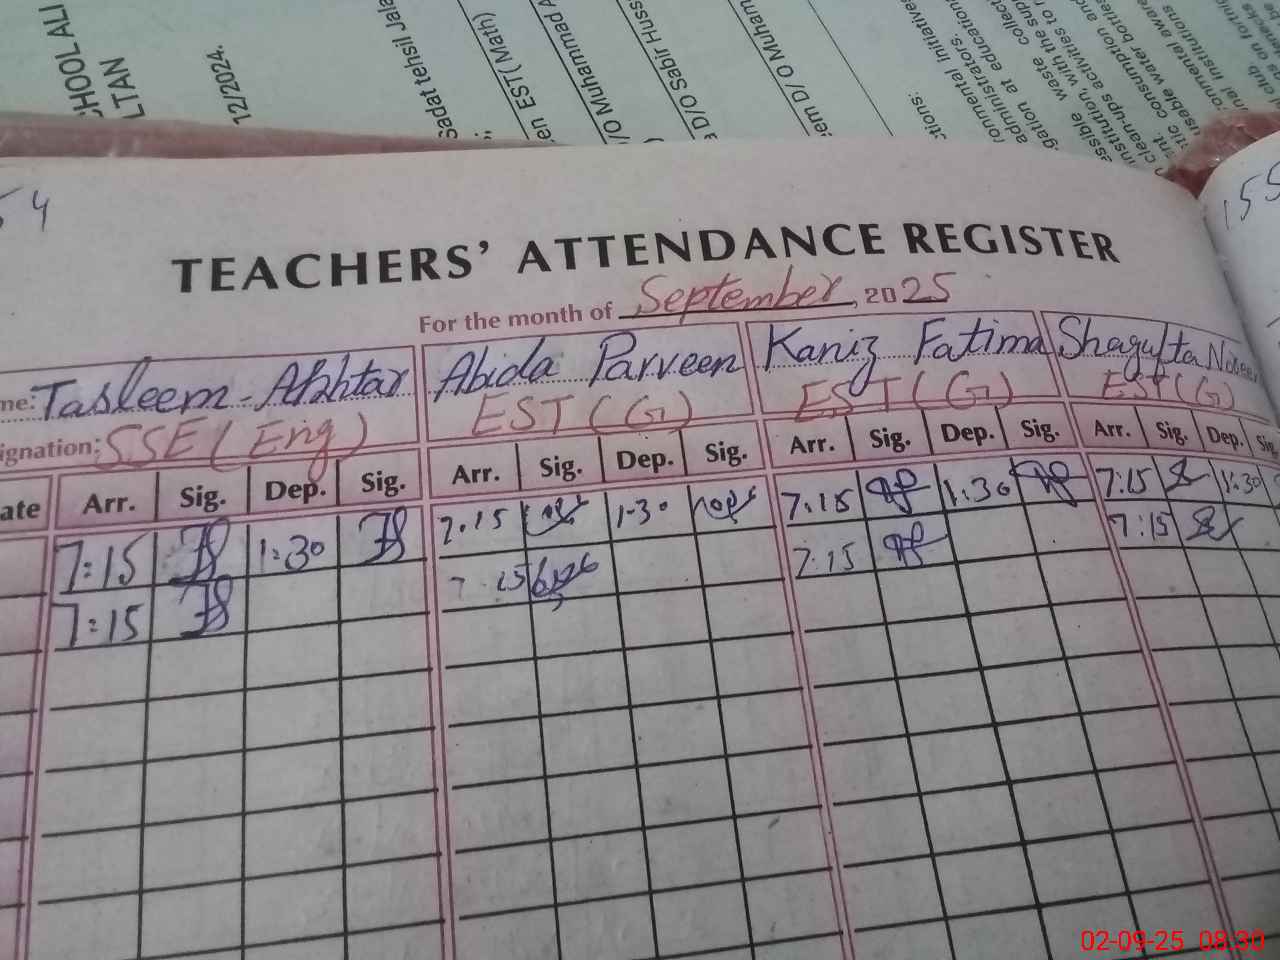 CHOOL ALI
LTAN
12/2024.
Sadat tehsil Jala
en EST (Math)
/O Muhammad A
a D/O Sabir Huss
eem D/O Muham
ctions:
onmental initiatives
administrators.
gation at educations
essible waste collect
institution, with the sup
clean-ups activities to r
nt.
tic consumption and
usable water bottles
onmental aware
nal institutions
club.
54
155
TEACHERS' ATTENDANCE REGISTER
For the month of September, 2025
me: Tasleem-Akhtar Abida Parveen Kaniz Fatima Shagufta Noreen
ignation: SSE (Eng) EST (G) EST (G) EST (G)
ate Arr. Sig. Dep. Sig. Arr. Sig. Dep. Sig. Arr. Sig. Dep. Sig. Arr. Sig. Dep. Sig
7:15 1:30 7:15 1-30 7:15 1:30 7:15 1:30
7:15 7:15 7:15 7:15
02-09-25 08:30